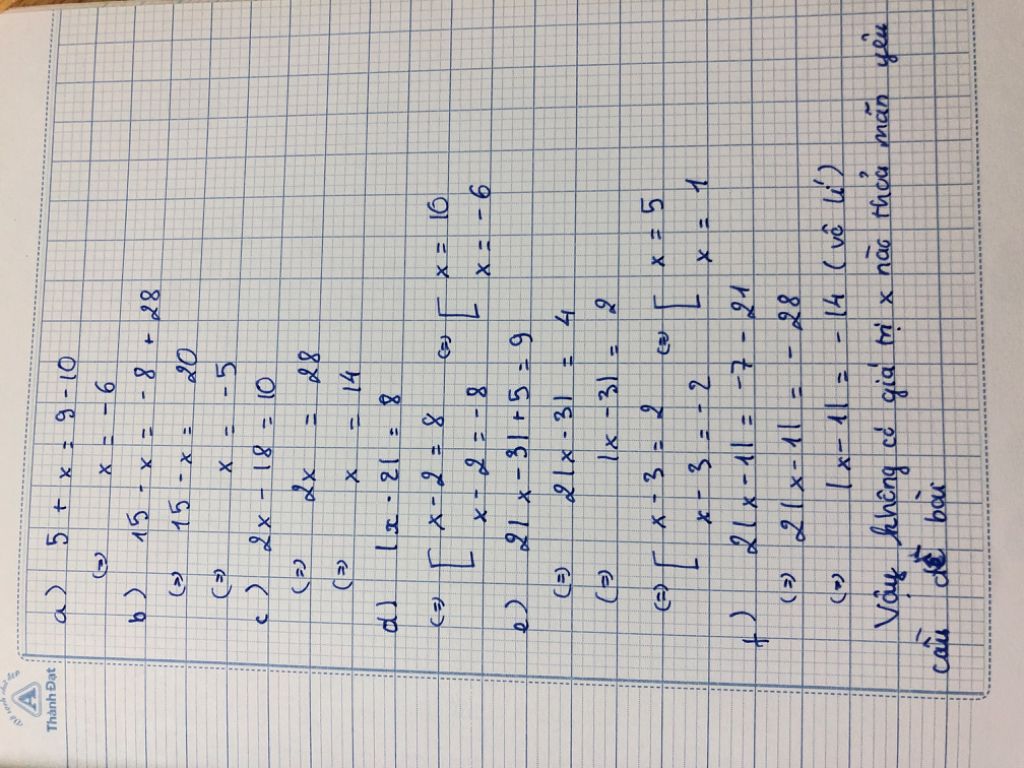 Thành Đạt
a) 5 + x = 9 - 10
(=) x = - 6
b) 15 - x = - 8 + 28
(=) 15 - x = 20
(=) x = - 5
c) 2x - 18 = 10
(=) 2x = 28
(=) x = 14
d) |x - 2| = 8
(=) [ x - 2 = 8 (=) [ x = 10
x - 2 = - 8 x = - 6
e) 2| x - 3| + 5 = 9
(=) 2| x - 3| = 4
(=) |x - 3| = 2
(=) [ x - 3 = 2 (=) [ x = 5
x - 3 = - 2 x = 1
f) 2| x - 1| = -7 - 21
(=) 2| x - 1| = - 28
(=) | x - 1| = - 14 (vô lí)
Vậy không có giá trị x nào thỏa mãn yêu
cầu đề bài